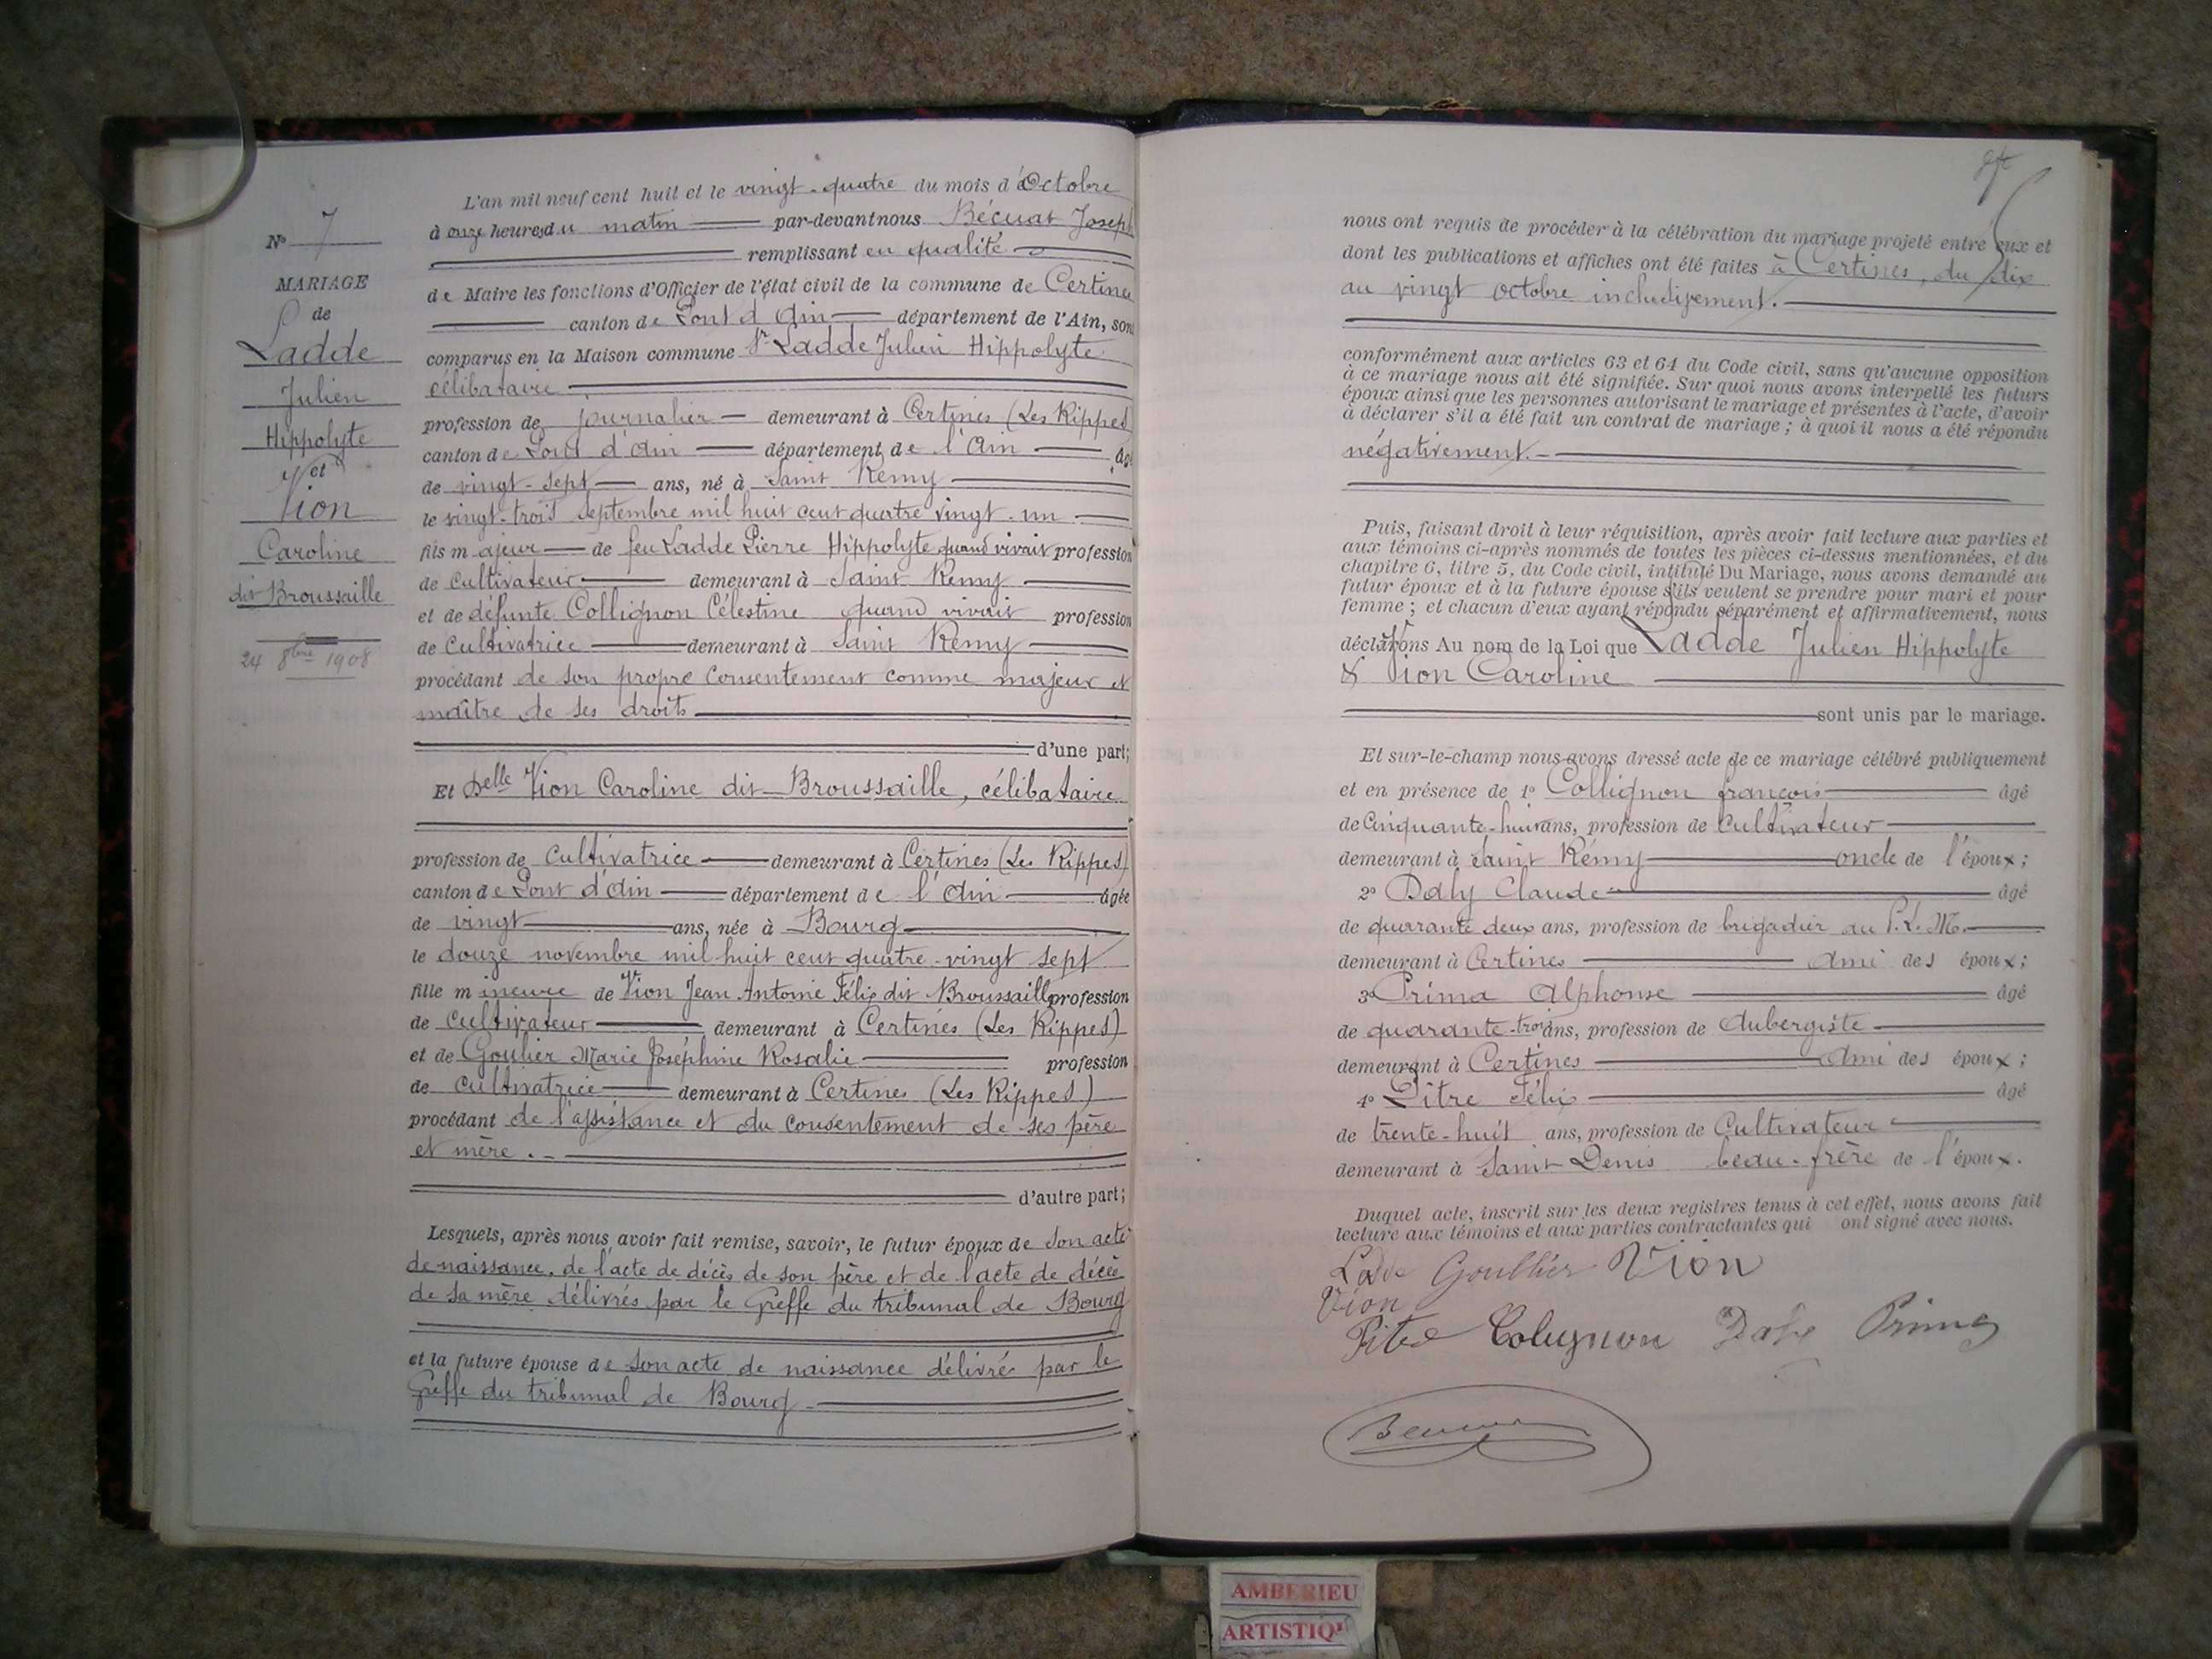 N° 7
MARIAGE
de
Ladde
Julien
Hippolyte
et
Vion
Caroline
dit Broussaille
24 8bre 1908
L'an mil neuf cent huit et le vingt-quatre du mois d'Octobre
à onze heures du matin par-devant nous Bécuat Joseph
remplissant en qualité
de Maire les fonctions d'Officier de l'état civil de la commune de Certines
canton de Pont d'Ain département de l'Ain, sont
comparus en la Maison commune Sr Ladde Julien Hippolyte
célibataire
profession de journalier demeurant à Certines (Les Rippes)
canton de Pont d'Ain département de l'Ain âgé
de vingt-sept ans, né à Saint Remy
le vingt-trois septembre mil huit cent quatre vingt-un
fils majeur de feu Ladde Pierre Hippolyte quand vivait profession
de Cultivateur demeurant à Saint Remy
et de défunte Collignon Célestine quand vivait profession
de Cultivatrice demeurant à Saint Remy
procédant de son propre consentement comme majeur et
maître de ses droits
d'une part;
Et Delle Vion Caroline dit Broussaille, célibataire
profession de Cultivatrice demeurant à Certines (Les Rippes)
canton de Pont d'Ain département de l'Ain âgée
de vingt ans, née à Bourg
le douze novembre mil huit cent quatre-vingt sept
fille mineure de Vion Jean Antoine Félix dit Broussaille profession
de Cultivateur demeurant à Certines (Les Rippes)
et de Goulier Marie Joséphine Rosalie profession
de Cultivatrice demeurant à Certines (Les Rippes)
procédant de l'assistance et du consentement de ses père
et mère.
d'autre part;
Lesquels, après nous avoir fait remise, savoir, le futur époux de son acte
de naissance, de l'acte de décès de son père et de l'acte de décès
de sa mère délivrés par le Greffe du tribunal de Bourg
et la future épouse de son acte de naissance délivré par le
Greffe du tribunal de Bourg
nous ont requis de procéder à la célébration du mariage projeté entre eux et
dont les publications et affiches ont été faites à Certines, du dix
au vingt octobre inclusivement.
conformément aux articles 63 et 64 du Code civil, sans qu'aucune opposition
à ce mariage nous ait été signifiée. Sur quoi nous avons interpellé les futurs
époux ainsi que les personnes autorisant le mariage et présentes à l'acte, d'avoir
à déclarer s'il a été fait un contrat de mariage; à quoi il nous a été répondu
négativement.
Puis, faisant droit à leur réquisition, après avoir fait lecture aux parties et
aux témoins ci-après nommés de toutes les pièces ci-dessus mentionnées, et du
chapitre 6, titre 5, du Code civil, intitulé Du Mariage, nous avons demandé au
futur époux et à la future épouse s'ils veulent se prendre pour mari et pour
femme; et chacun d'eux ayant répondu séparément et affirmativement, nous
déclarons Au nom de la Loi que Ladde Julien Hippolyte
& Vion Caroline
sont unis par le mariage.
Et sur-le-champ nous avons dressé acte de ce mariage célébré publiquement
et en présence de 1° Collignon françois âgé
de Cinquante-huit ans, profession de Cultivateur
demeurant à Saint Rémy oncle de l'époux;
2° Daly Claude âgé
de quarante deux ans, profession de brigadier au P.L.M.
demeurant à Certines ami des époux;
3° Prima Alphonse âgé
de quarante-trois ans, profession de Aubergiste
demeurant à Certines Ami des époux;
4° Pitre Félix âgé
de trente-huit ans, profession de Cultivateur
demeurant à Saint Denis beau-frère de l'époux.
Duquel acte, inscrit sur les deux registres tenus à cet effet, nous avons fait
lecture aux témoins et aux parties contractantes qui ont signé avec nous.
Ladde Goullier Vion
Vion
Pitre Colignon Prima
AMBERIEU
ARTISTIQ